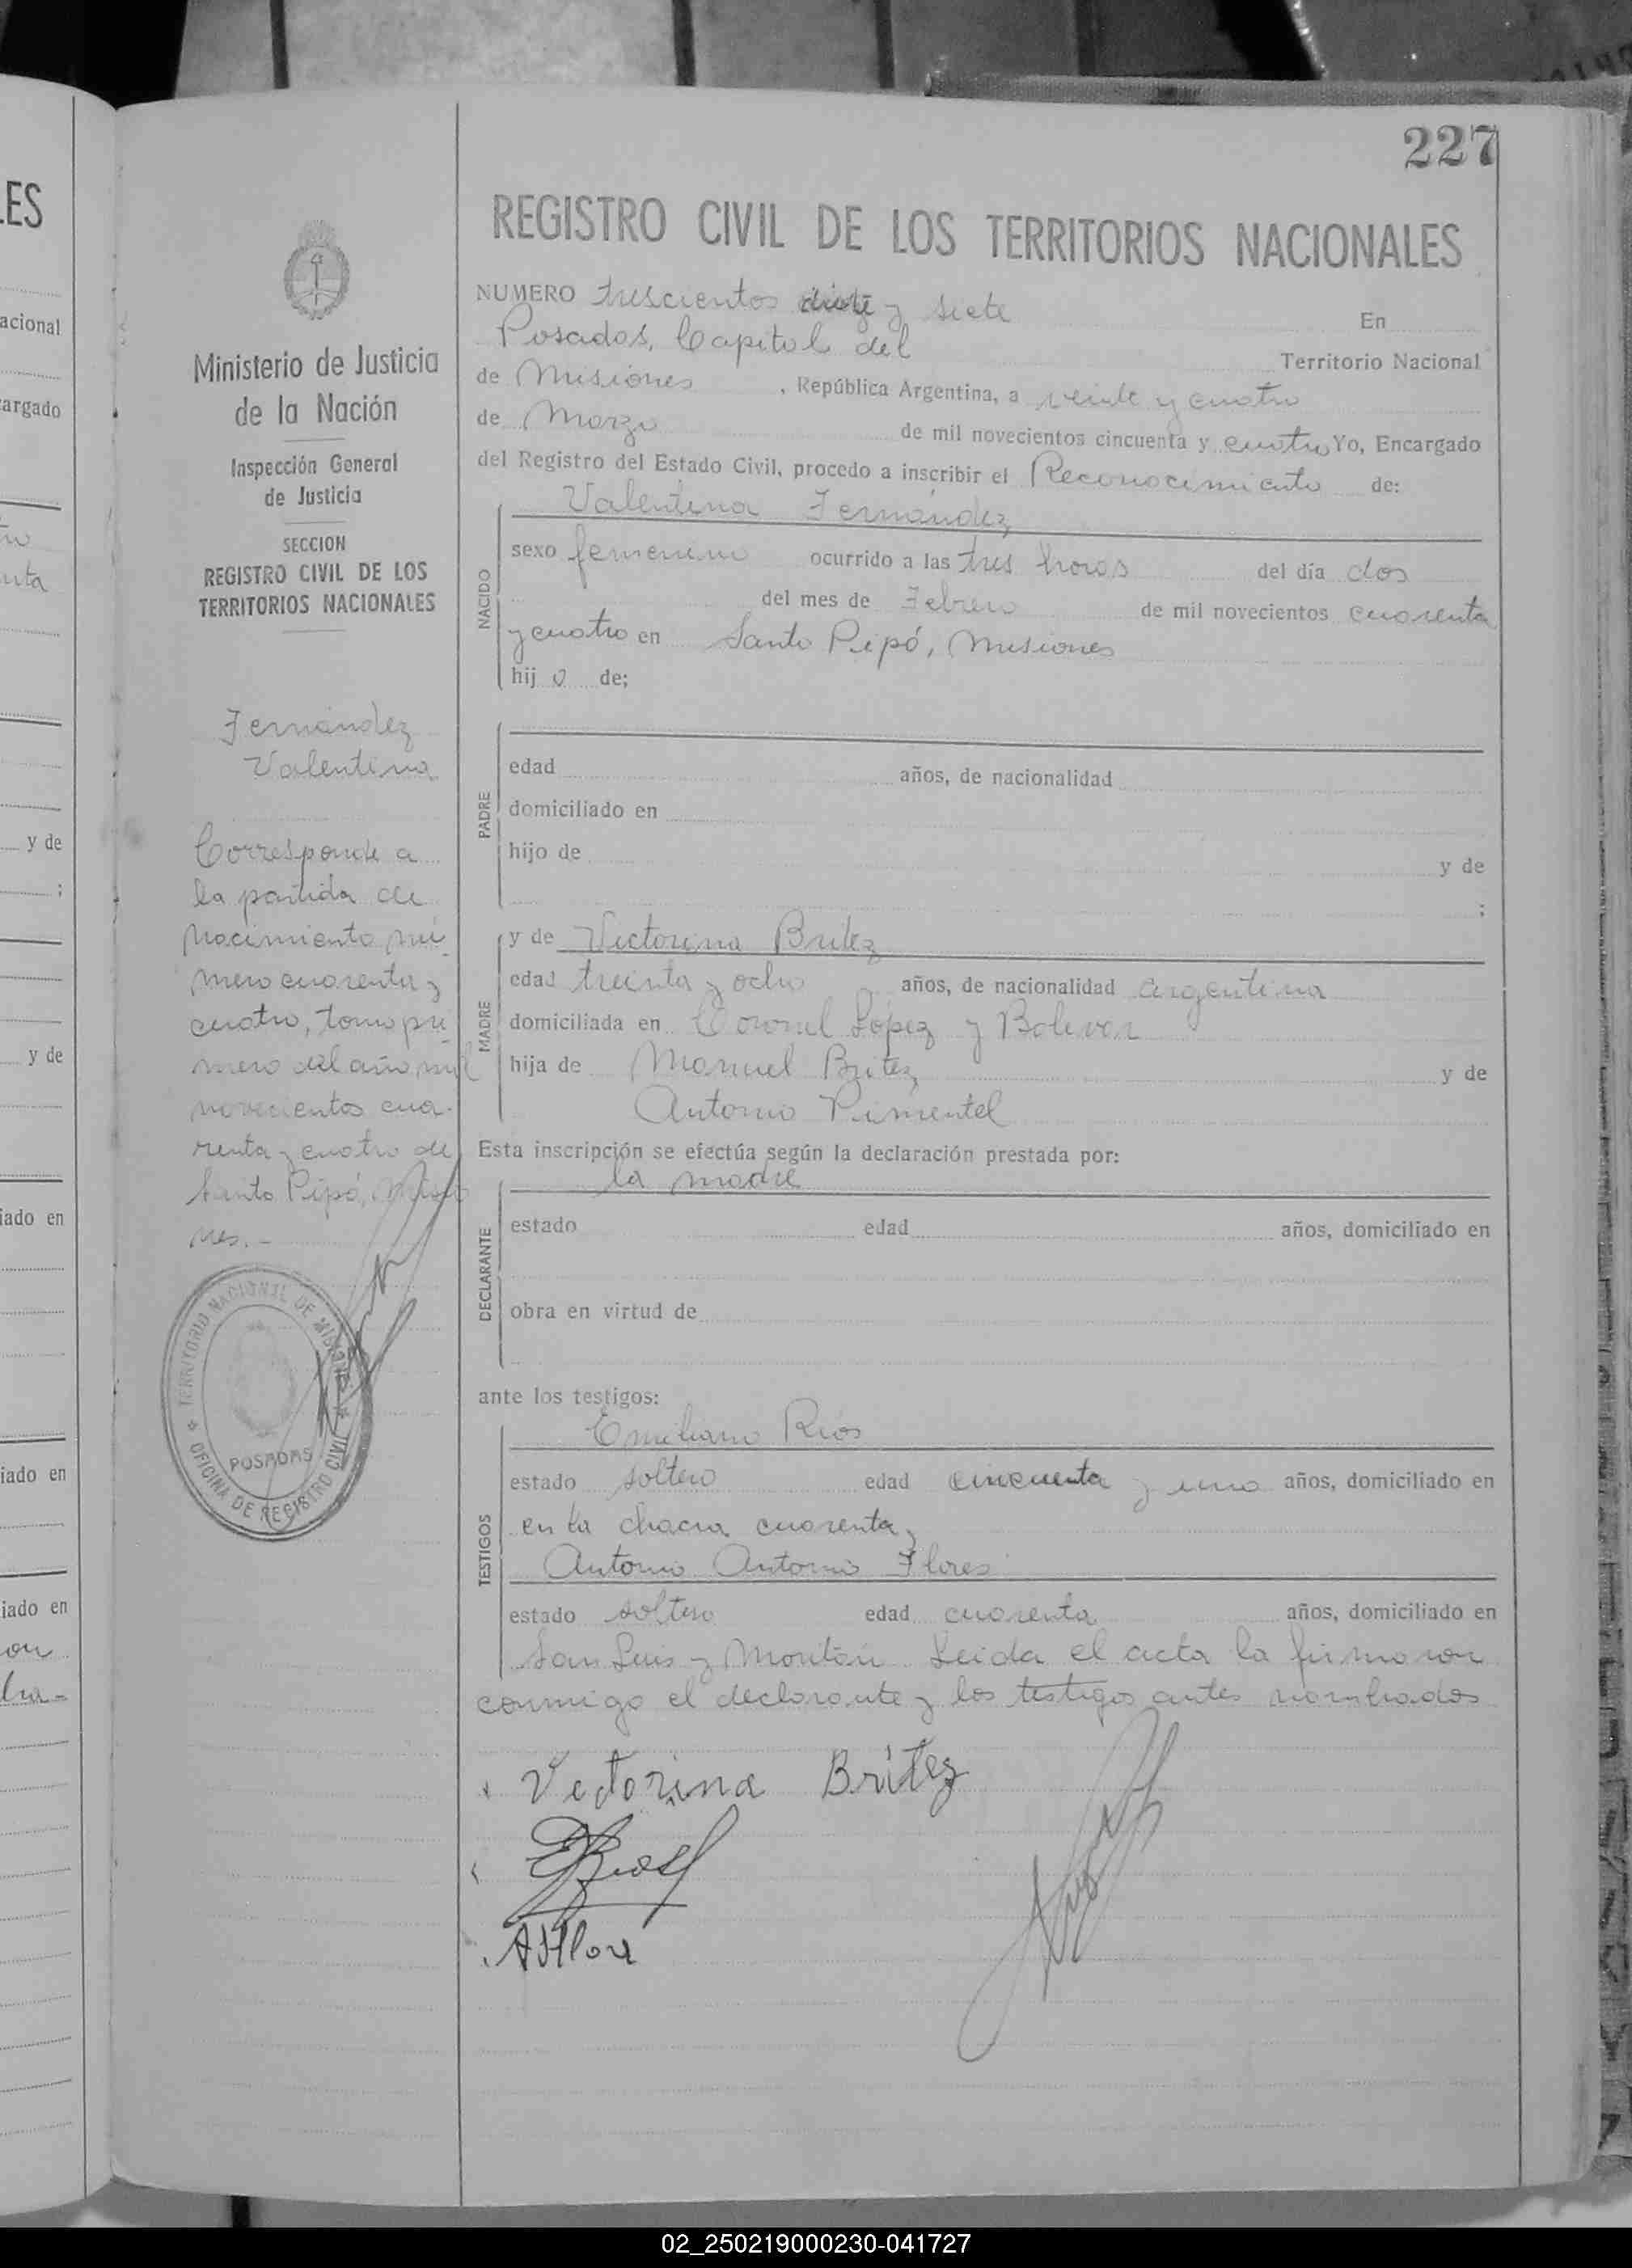 227
REGISTRO CIVIL DE LOS TERRITORIOS NACIONALES
NUMERO trescientos diez y siete En
Posadas, Capital del Territorio Nacional
de Misiones , República Argentina, a veinte y cuatro
de Marzo de mil novecientos cincuenta y cuatro Yo, Encargado
del Registro del Estado Civil, procedo a inscribir el Reconocimiento de:
NACIDO
Valentina Fernández
sexo femenino ocurrido a las tres horas del día dos
del mes de Febrero de mil novecientos cuarenta
y cuatro en Santo Pipó, Misiones
hij o de;
PADRE
edad años, de nacionalidad
domiciliado en
hijo de y de
;
MADRE
y de Victorina Britez
edad treinta y ocho años, de nacionalidad argentina
domiciliada en Coronel López y Bolivar
hija de Manuel Britez y de
Antonia Pimentel
Esta inscripción se efectúa según la declaración prestada por:
DECLARANTE
la madre
estado edad años, domiciliado en
obra en virtud de
ante los testigos:
TESTIGOS
Emiliano Rios
estado soltero edad cincuenta y uno años, domiciliado en
en la chacra cuarenta y
Antonio Antonio Flores
estado soltero edad cuarenta años, domiciliado en
San Luis y Leida el acta la firmaron
conmigo el declarante y los testigos antes nombrados
Victorina Britez
Ministerio de Justicia
de la Nación
Inspección General
de Justicia
SECCION
REGISTRO CIVIL DE LOS
TERRITORIOS NACIONALES
Fernández
Valentina
Corresponde a
la partida de
Nacimiento nú-
mero cuarenta y
cuatro, tomo pri
mero del año mil
novecientos cua-
renta y cuatro de
Santo Pipó, Misio
nes.-
TERRITORIO NACIONAL DE MISIONES
OFICINA DE REGISTRO CIVIL
POSADAS
ES
acional
argado
y de
;
y de
iado en
iado en
iado en
02_250219000230-041727